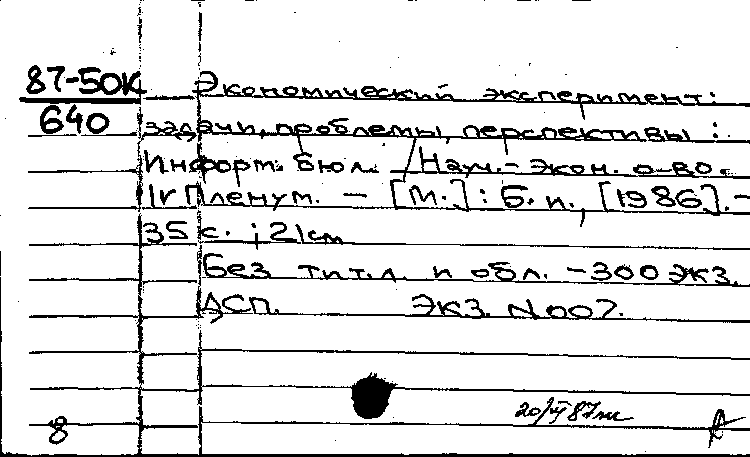 87-50К Экономический эксперимент:
640 задачи, проблемы, перспективы :
Информ. бюл. / Науч.-экон. о-во.
IV Пленум. – [М.] : Б. и., [1986]. –
35 с. ; 21 см
Без тит. л. и обл. – 300 экз.
ДСП. Экз. N 007.
8
20/VI 87